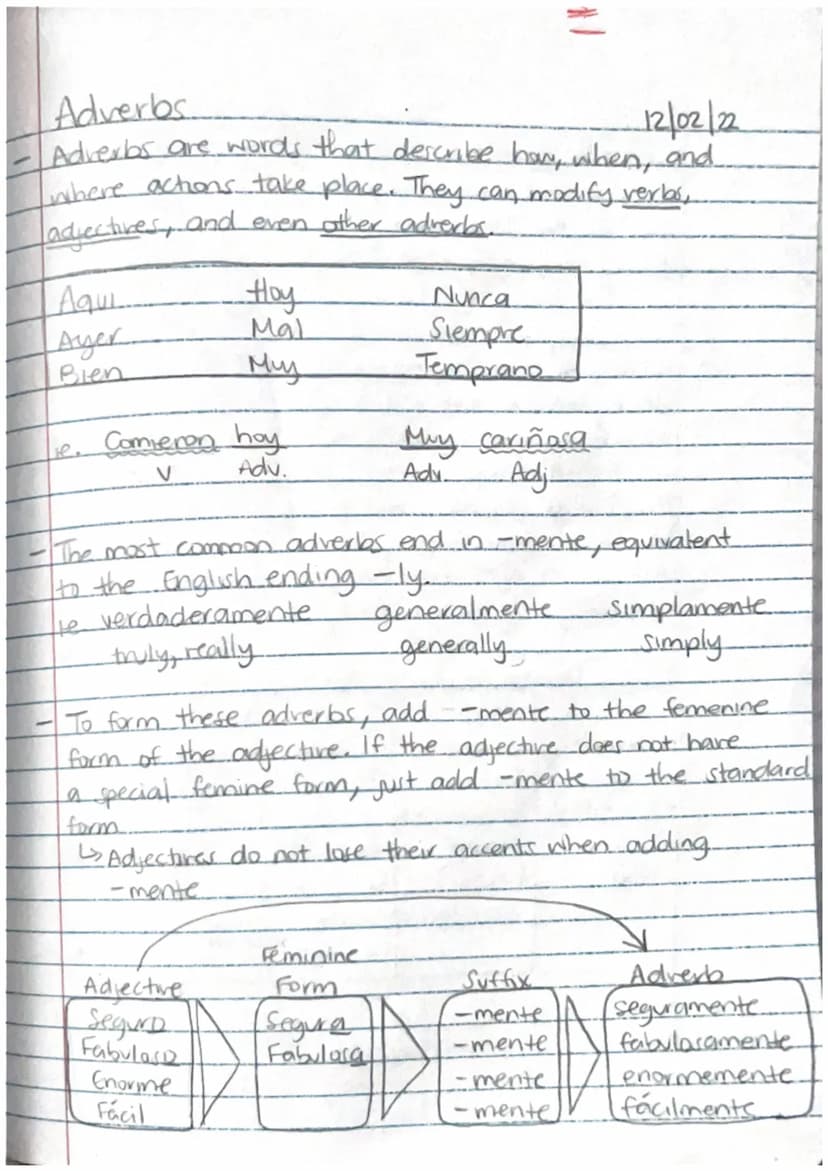 Adverbs
12/02/22
- Adverbs are words that describe how, when, and
where actions take place. They can modify verbs,
adjectives, and even other adverbs.
Aqui Hoy Nunca
Ayer Mal Siempre
Bien Muy Temprano
ie. Comieron hoy Muy cariñosa
V Adv. Adv. Adj
- The most common adverbs end in -mente, equivalent
to the English ending -ly.
ie verdaderamente generalmente simplamente
truly, really generally simply
- To form these adverbs, add -mente to the femenine
form of the adjective. If the adjective does not have
a special femine form, just add -mente to the standard
form
↳ Adjectives do not lose their accents when adding
-mente
Adjective Feminine Form Suffix Adverb
Seguro Segura -mente seguramente
Fabuloso Fabulosa -mente fabulosamente
Enorme -mente enormemente
Fácil -mente fácilmente